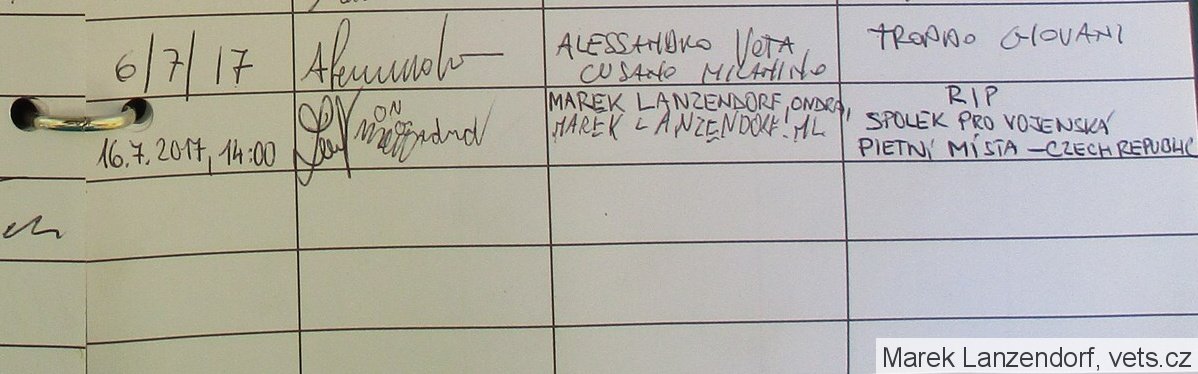 6/7/17
ALESSANDRO VOTA
CUSANO MILANINO
TROPPO GIOVANI
16.7.2017, 14:00
MAREK LANZENDORF, ONDRA,
MAREK LANZENDORF. ML
RIP
SPOLEK PRO VOJENSKÁ
PIETNÍ MÍSTA – CZECH REPUBLIC
Marek Lanzendorf, vets.cz